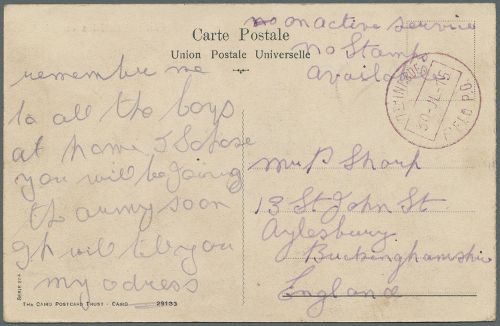 Carte Postale
Union Postale Universelle
no on active service
no Stamps
Available
30-JL-15
FIELD P.O.
remember me
to all the boys
at home I Sopose
you will be Joing
the army soon
Gh will till you
my adress
Mr P Sharp
13 St John St
Aylesbury
Buckinghamshire
England
THE CAIRO POSTCARD TRUST - CAIRO 29133